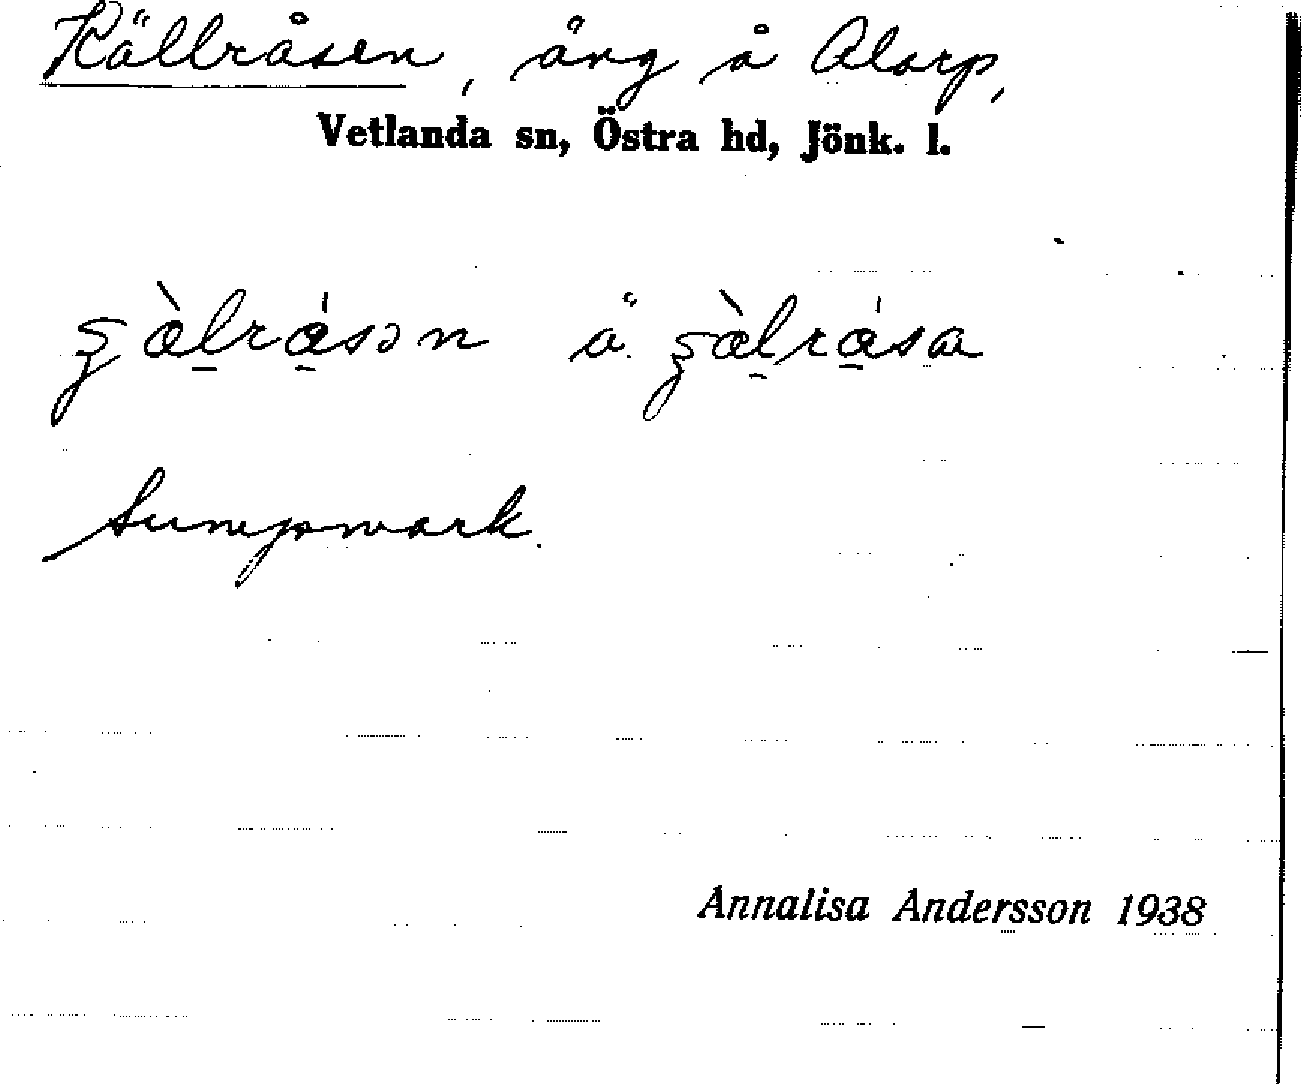 Källråsen, äng å Alarp,
Vetlanda sn, Östra hd, Jönk. l.
ʓàlrásən å ʓàlrása
Sumpmark.
Annalisa Andersson 1938